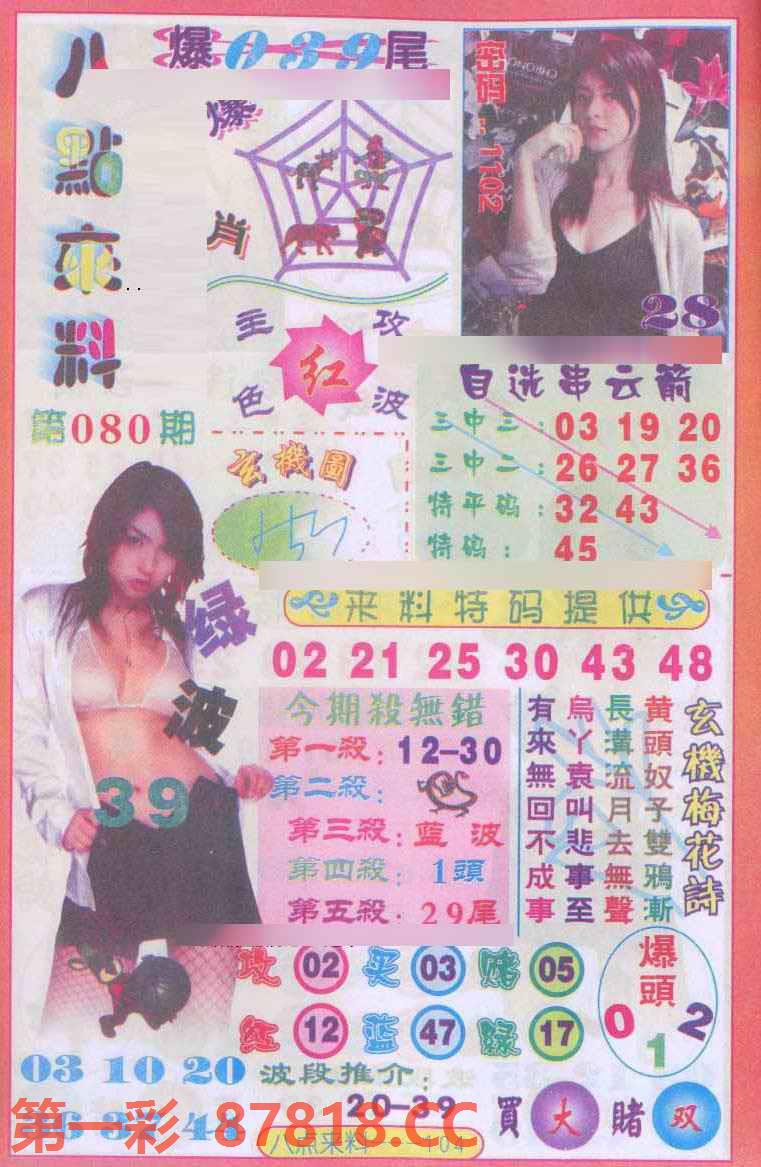 八點來料
爆039尾
爆肖
密码:1102
28
主攻
红
色波
第080期
玄機圖
自选串云箭
三中三:03 19 20
三中二:26 27 36
特平码:32 43
特码:45
来料特码提供
02 21 25 30 43 48
波
39
今期殺無錯
第一殺:12-30
第二殺:
第三殺:藍波
第四殺:1頭
第五殺:29尾
玄機梅花詩
黄頭奴子雙鴉漸
長溝流月去無聲
烏丫袁叫悲事至
有來無回不成事
攻 02 买 03 赌 05
红 12 蓝 47 绿 17
爆頭
0 1 2
03 10 20
波段推介:
20-39
買大賭双
第一彩 87818.CC
八点来料 104